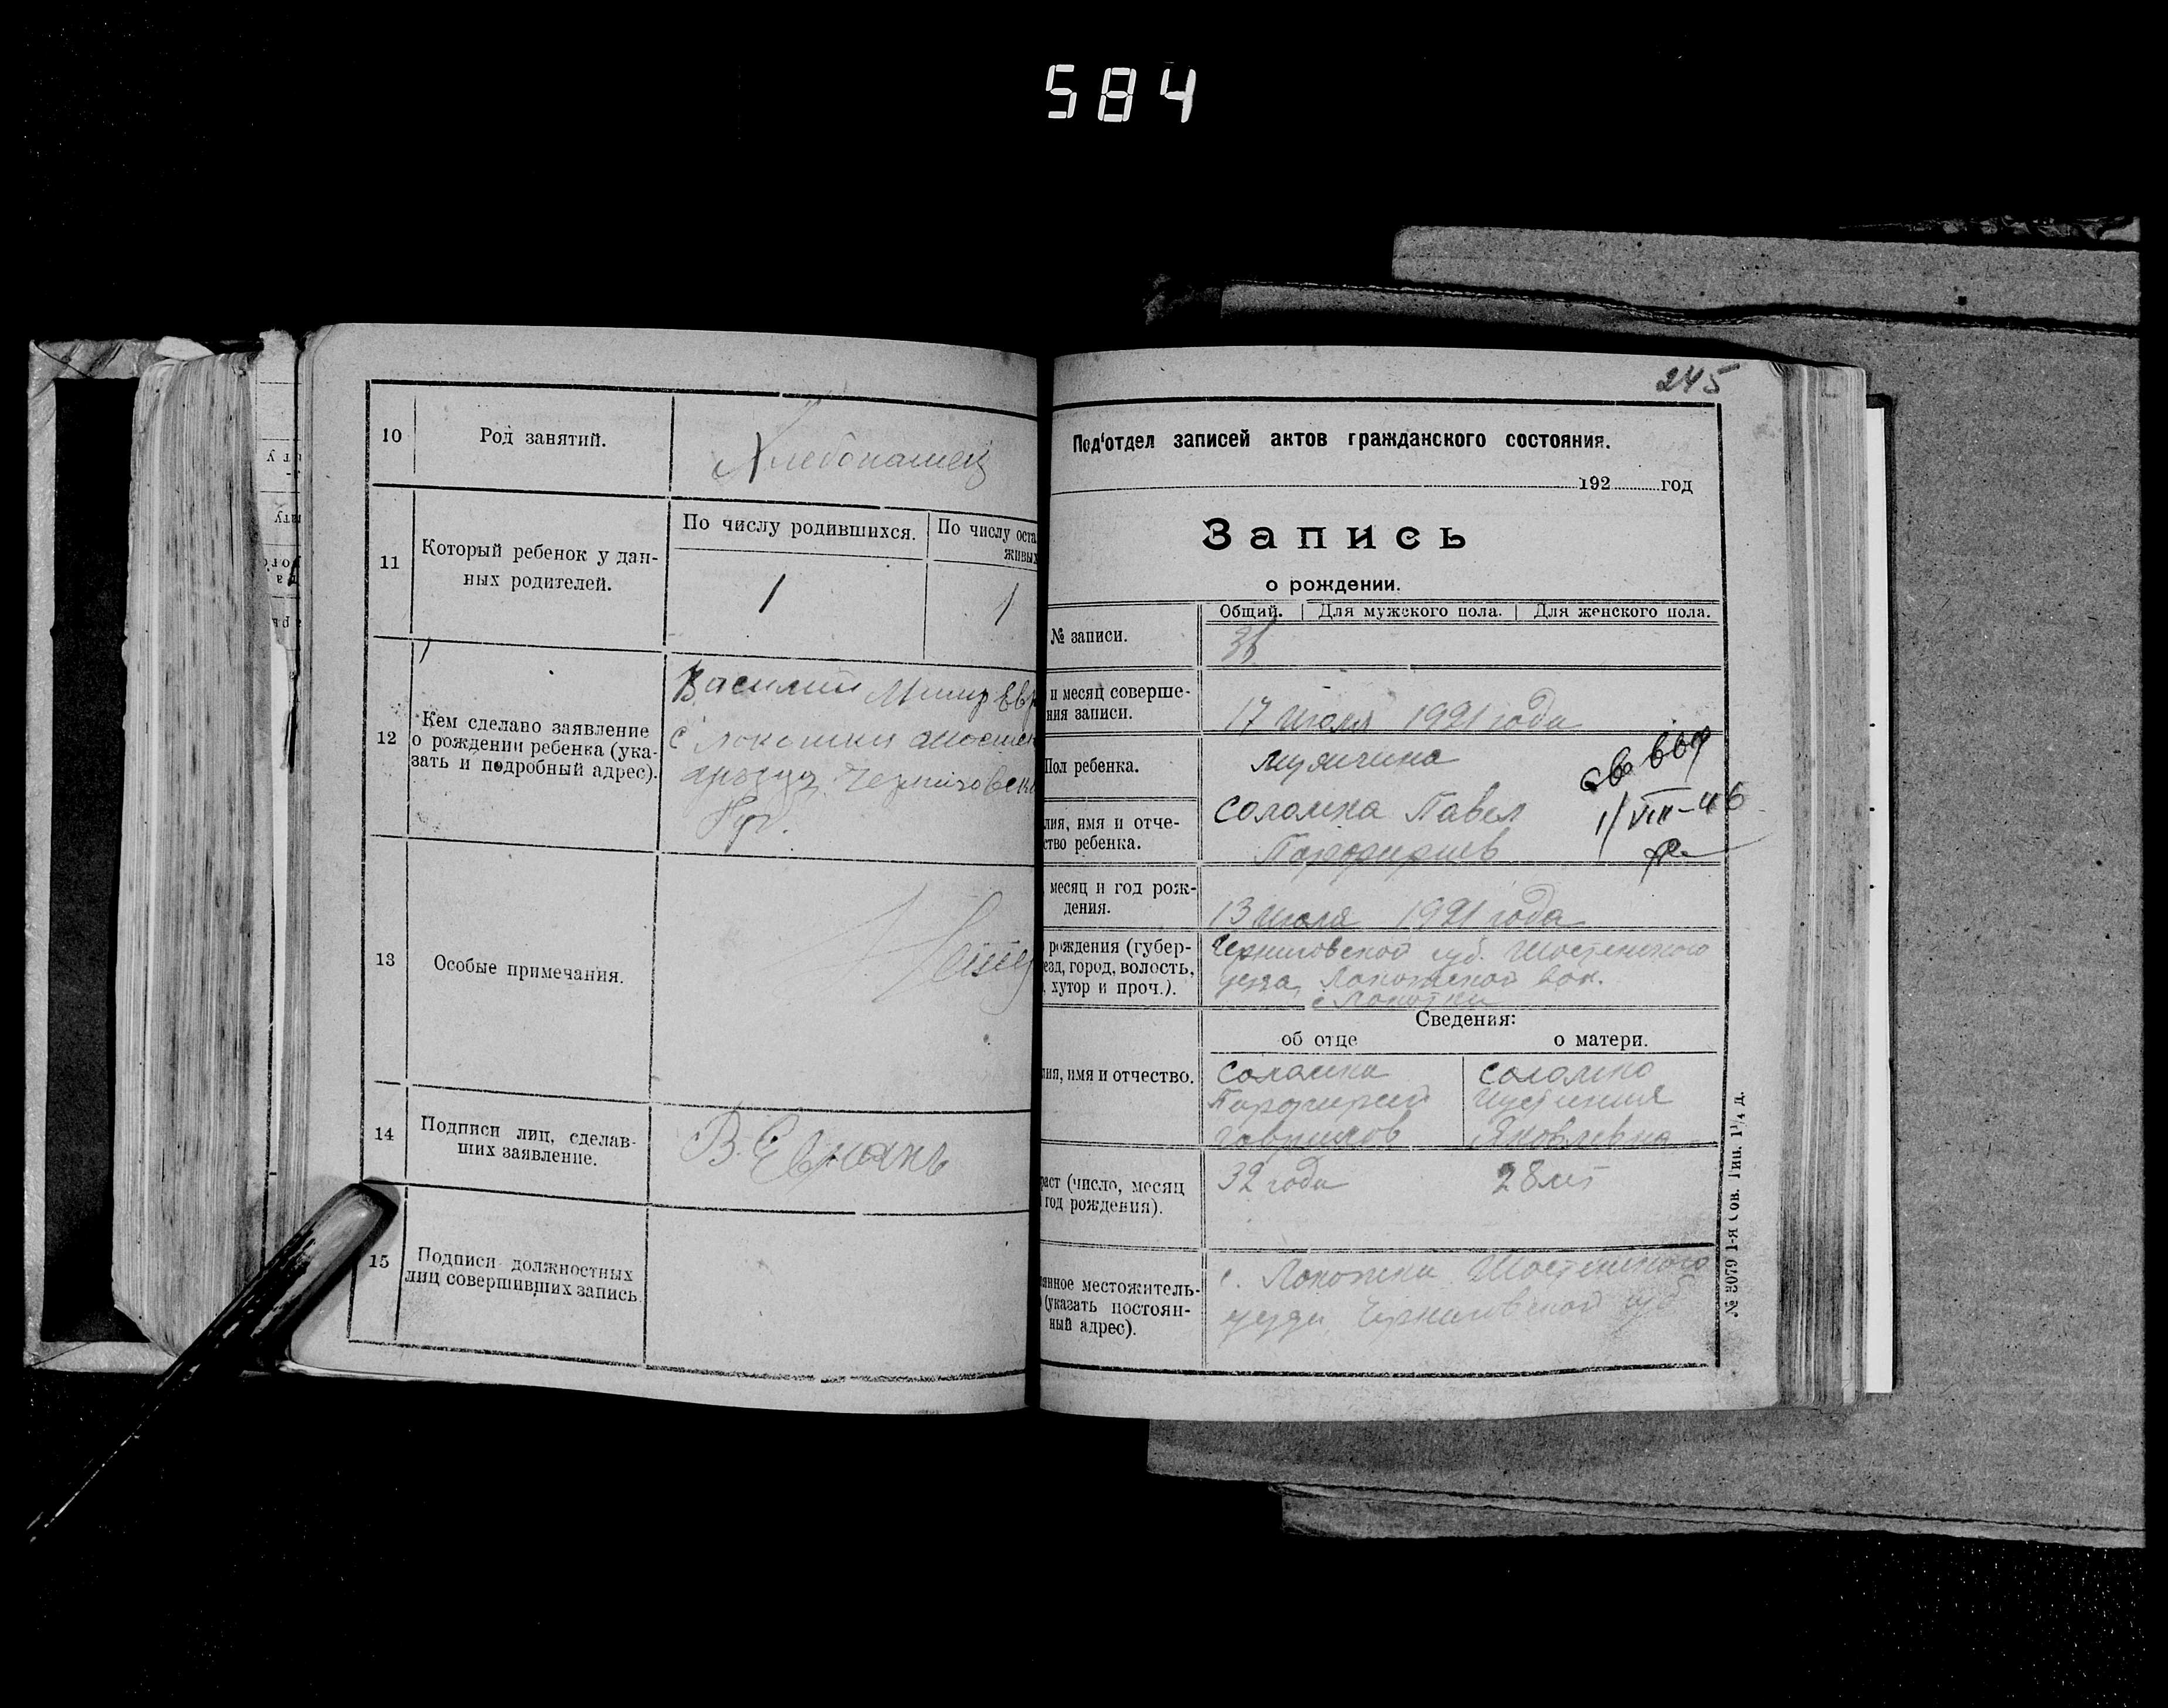 584
10
Род занятий.
Хлебопашец
11
Который ребенок у дан-
ных родителей.
По числу родившихся.
По числу оста
живых
1
1
12
Кем сделано заявление
о рождении ребенка (ука-
зать и подробный адрес).
Василий
с
Черниговско
13
Особые примечания.
14
Подписи лиц, сделав-
ших заявление.
В.
15
Подписи должностных
лиц совершивших запись.
245
Под'отдел записей актов гражданского состояния.
192 год
Запись
о рождении.
Общий.
Для мужского пола.
Для женского пола.
№ записи.
36
и месяц соверше-
ния записи.
17 июля 1921 года
Пол ребенка.
мужчина
св выд
1/VIII-46
лия, имя и отче-
ство ребенка.
Соломка Павел
Порфириев
месяц и год рож-
дения.
13 июля 1921 года
рождения (губер-
езд, город, волость,
хутор и проч.).
Черниговской губ. Шостенского
уезда, вол.
с
Сведения:
об отце
о матери.
ия, имя и отчество.
Соломка
Порфирий
Гаврилов
Соломко
Иустиния
Яковлевна
раст (число, месяц
год рождения).
32 года
28 лет
янное местожитель-
(указать постоян-
ный адрес).
с. Шостенского
уезда, Черниговской губ
№ 5079 1-я Сов. Тип. 1¹/₄ д.